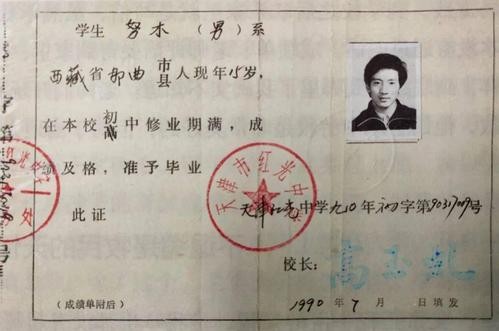 学生 努木 （男）系
西藏省那曲市县人现年15岁，
在本校初高中修业期满，成
绩及格，准予毕业
此证
天津市红光中学
天津红光中学九〇年初字第9031709号
校长：高玉乱
1990年7月 日填发
（成绩单附后）
处
号